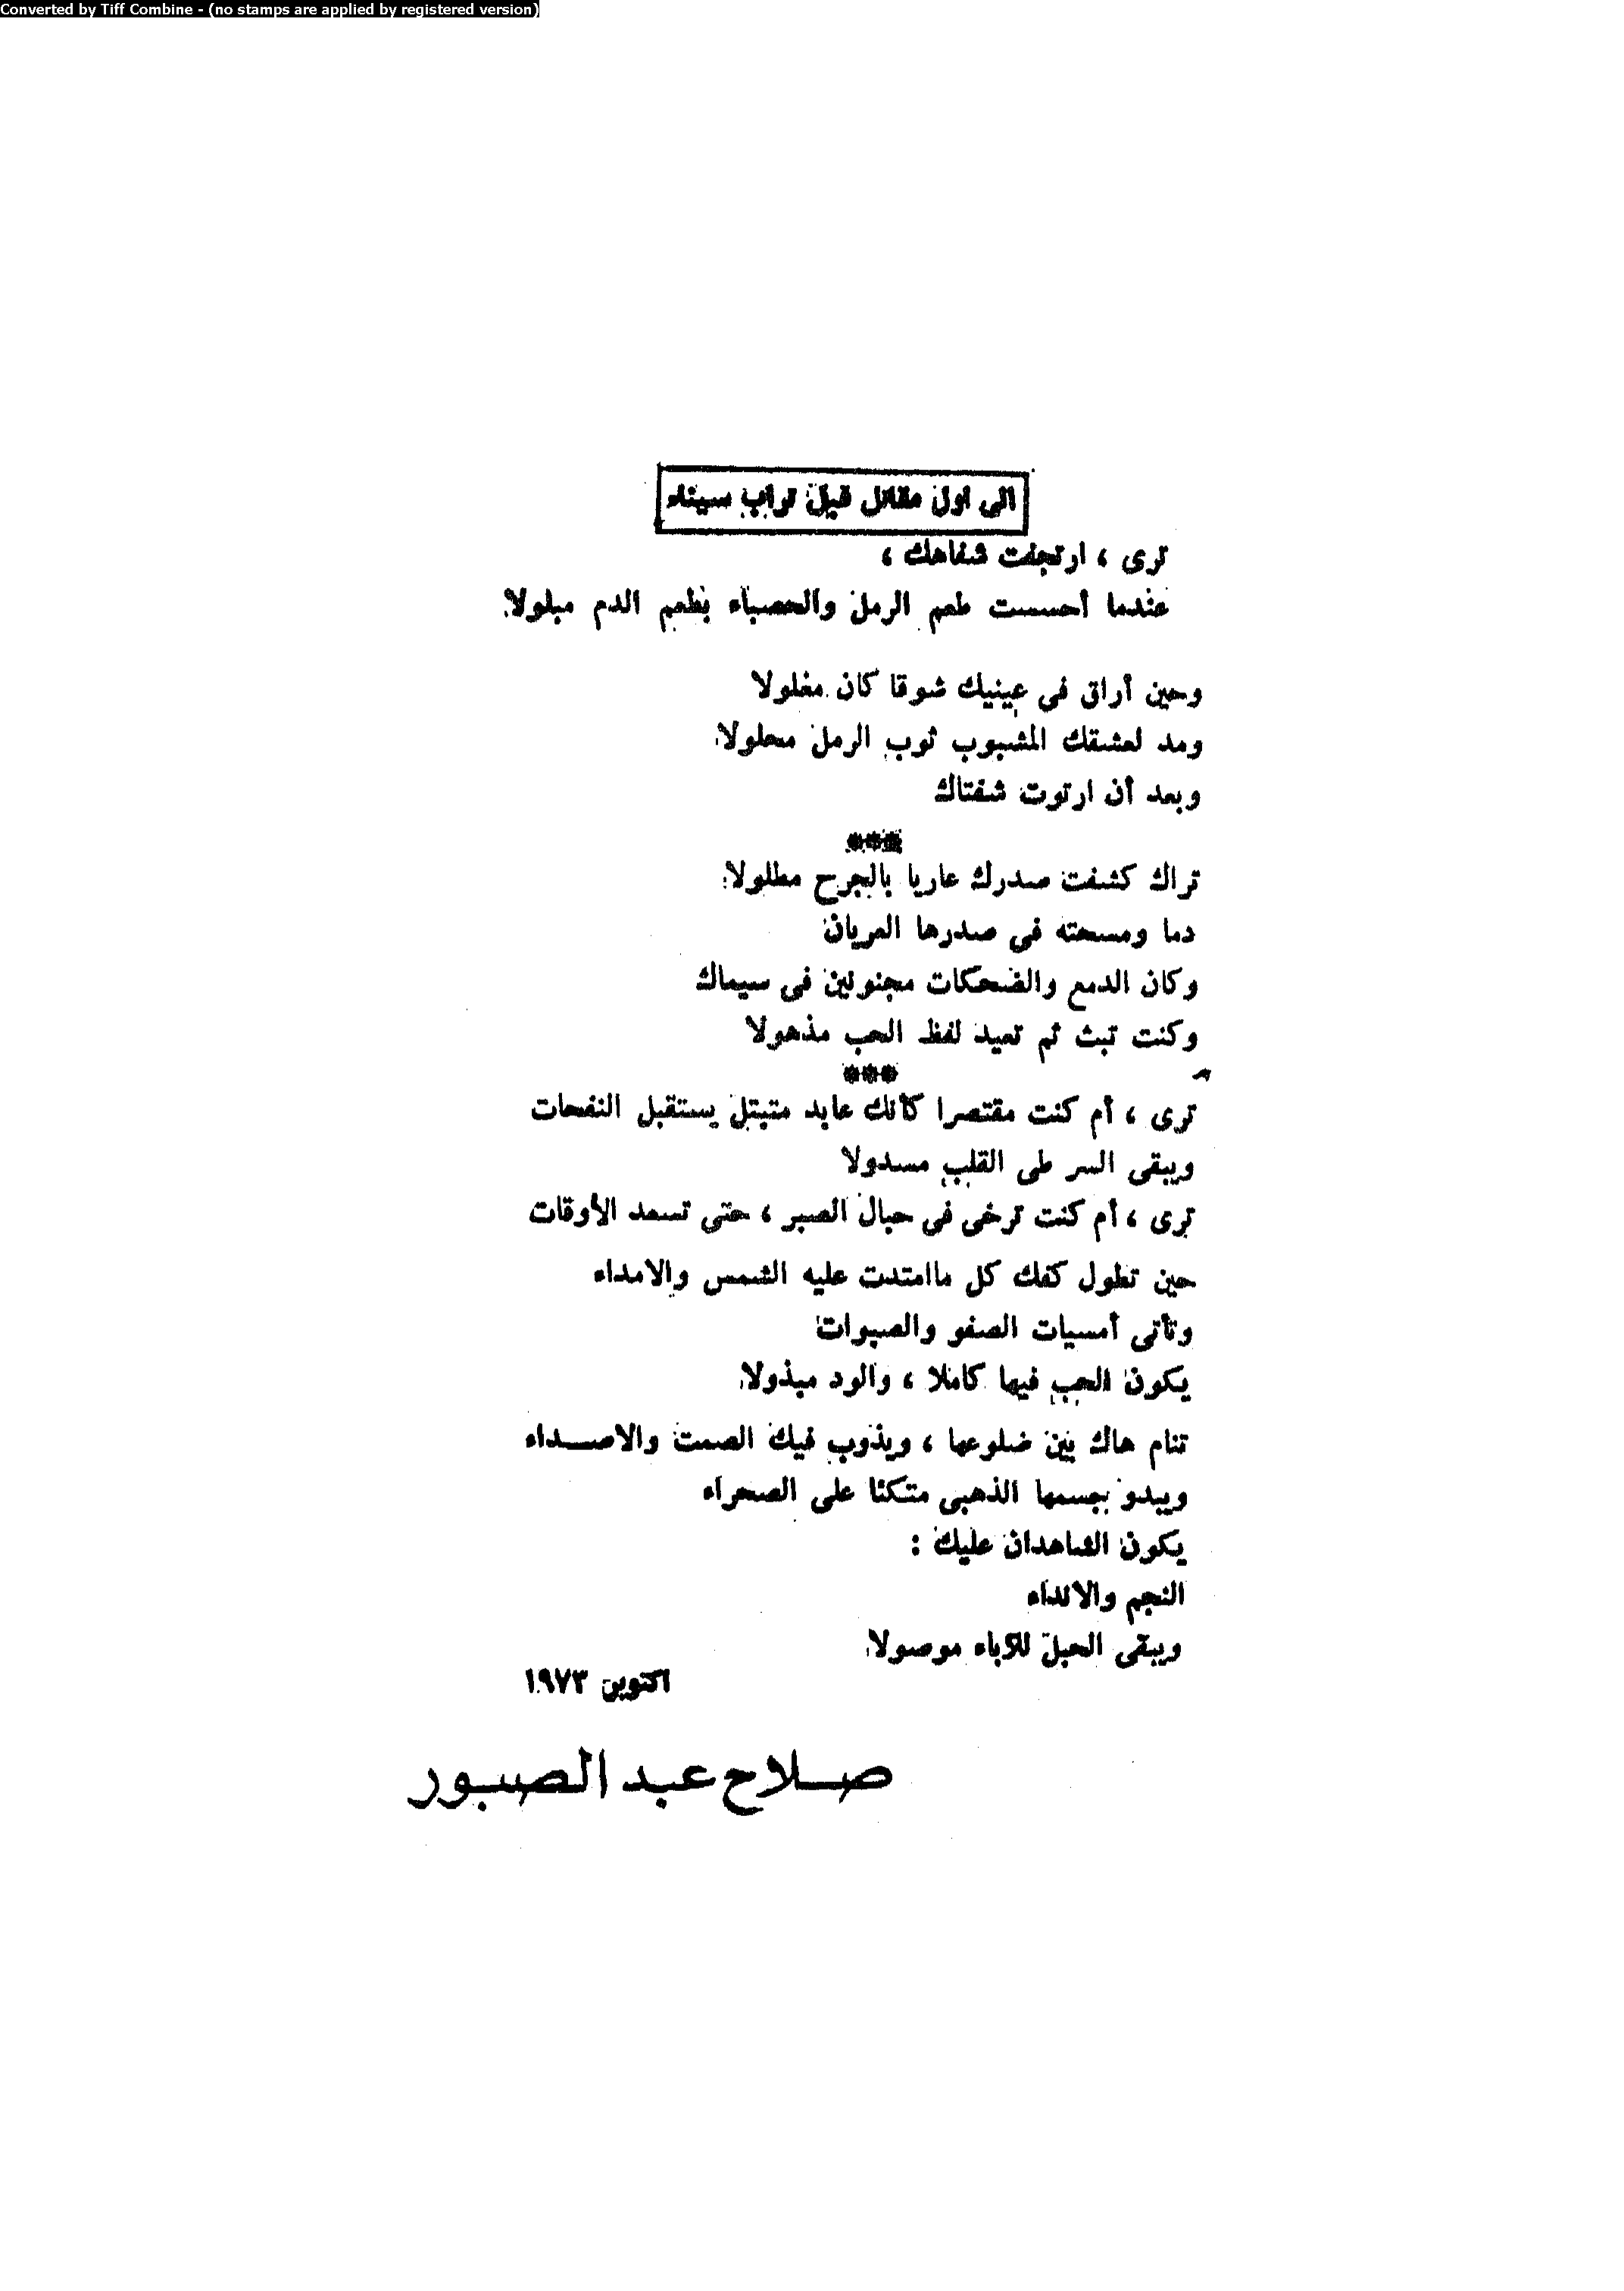 Converted by Tiff Combine - (no stamps are applied by registered version)
الى اول مقاتل قبل تراب سيناء
ترى ، ارتجفت شفاهك ،
عندما أحسست طعم الرمل والحصباء بطعم الدم مبلولا
وحين أراق فى عينيك شوقا كان مغلولا
ومد لعشقك المشبوب ثوب الرمل محلولا
وبعد أن ارتوت شفتاك
***
تراك كشفت صدرك عاريا بالجرح مطلولا
دما ومسحته فى صدرها العريان
وكان الدمع والضحكات مجنونين فى سيماك
وكنت تبث ثم تعيد لفظ الحب مذهولا
***
ترى ، أم كنت مقتصرا كأنك عابد متبتل يستقبل النفحات
ويبقى السر طى القلب مسدولا
ترى ، أم كنت ترخى فى حبال الصبر ، حتى تسعد الأوقات
حين تطول كفك كل ماامتدت عليه الشمس والامداء
وتأتى أمسيات الصفو والصبوات
يكون الحب فيها كاملا ، والود مبذولا
تنام هاك بين ضلوعها ، ويذوب فيك الصمت والاصداء
ويبدو جسمها الذهبى متكئا على الصحراء
يكون الشاهدان عليك :
النجم والانداء
ويبقى الحبل للآباء موصولا
اكتوبر ١٩٧٣
صلاح عبد الصبور